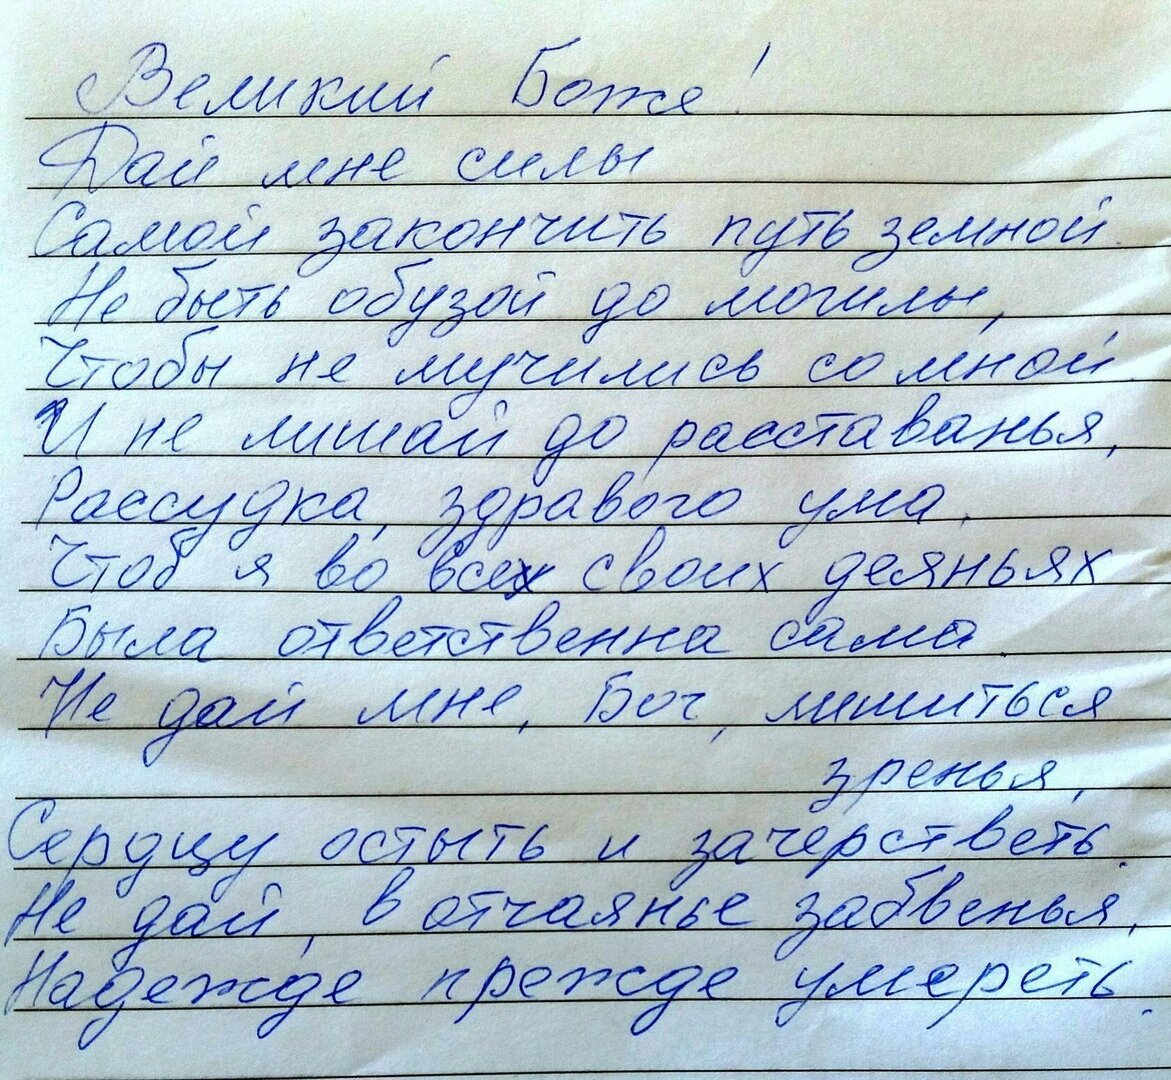 Великий Боже!
Дай мне силы
Самой закончить путь земной.
Не быть обузой до могилы,
Чтобы не мучились со мной.
И не лишай до расставанья,
Рассудка, здравого ума.
Чтоб я во всех своих деяньях
Была ответственна сама.
Не дай мне, Бог, лишиться
зренья,
Сердцу остыть и зачерстветь.
Не дай, в отчаянье забвенья,
Надежде прежде умереть.